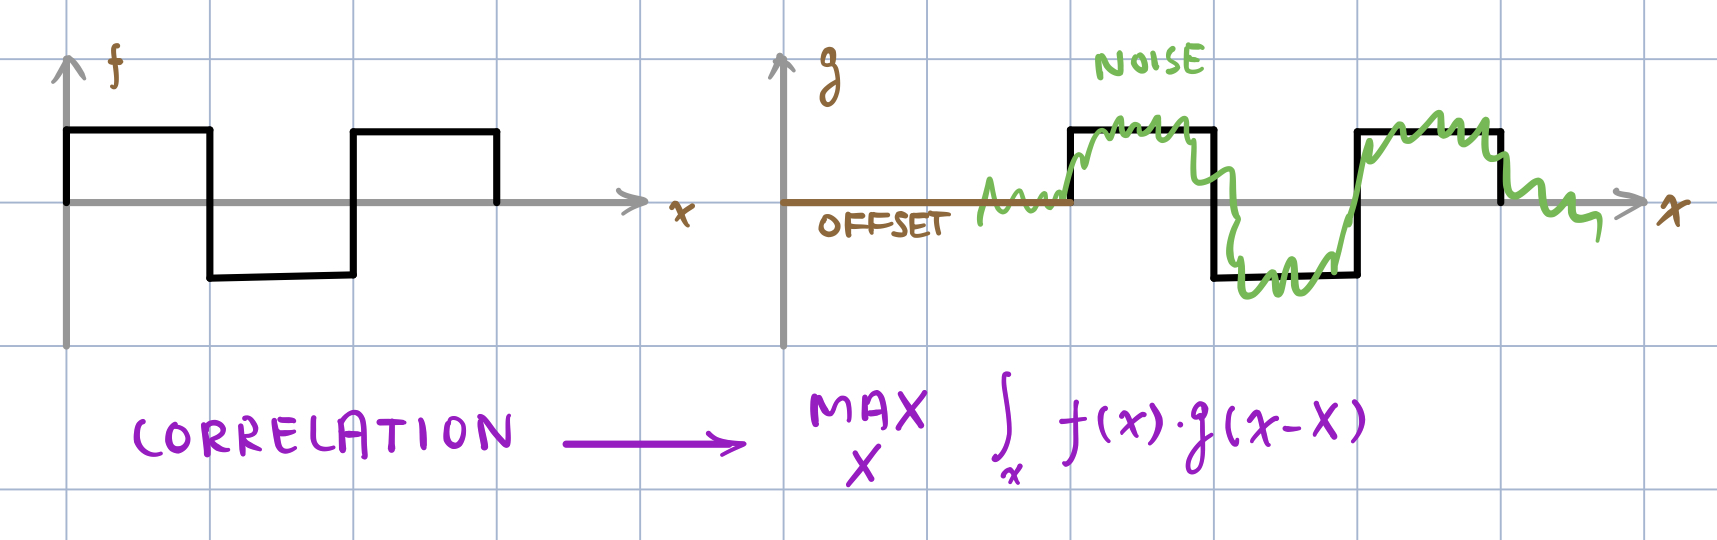 f
g
NOISE
x
OFFSET
x
CORRELATION → MAX X ∫x f(x)·g(x-X)